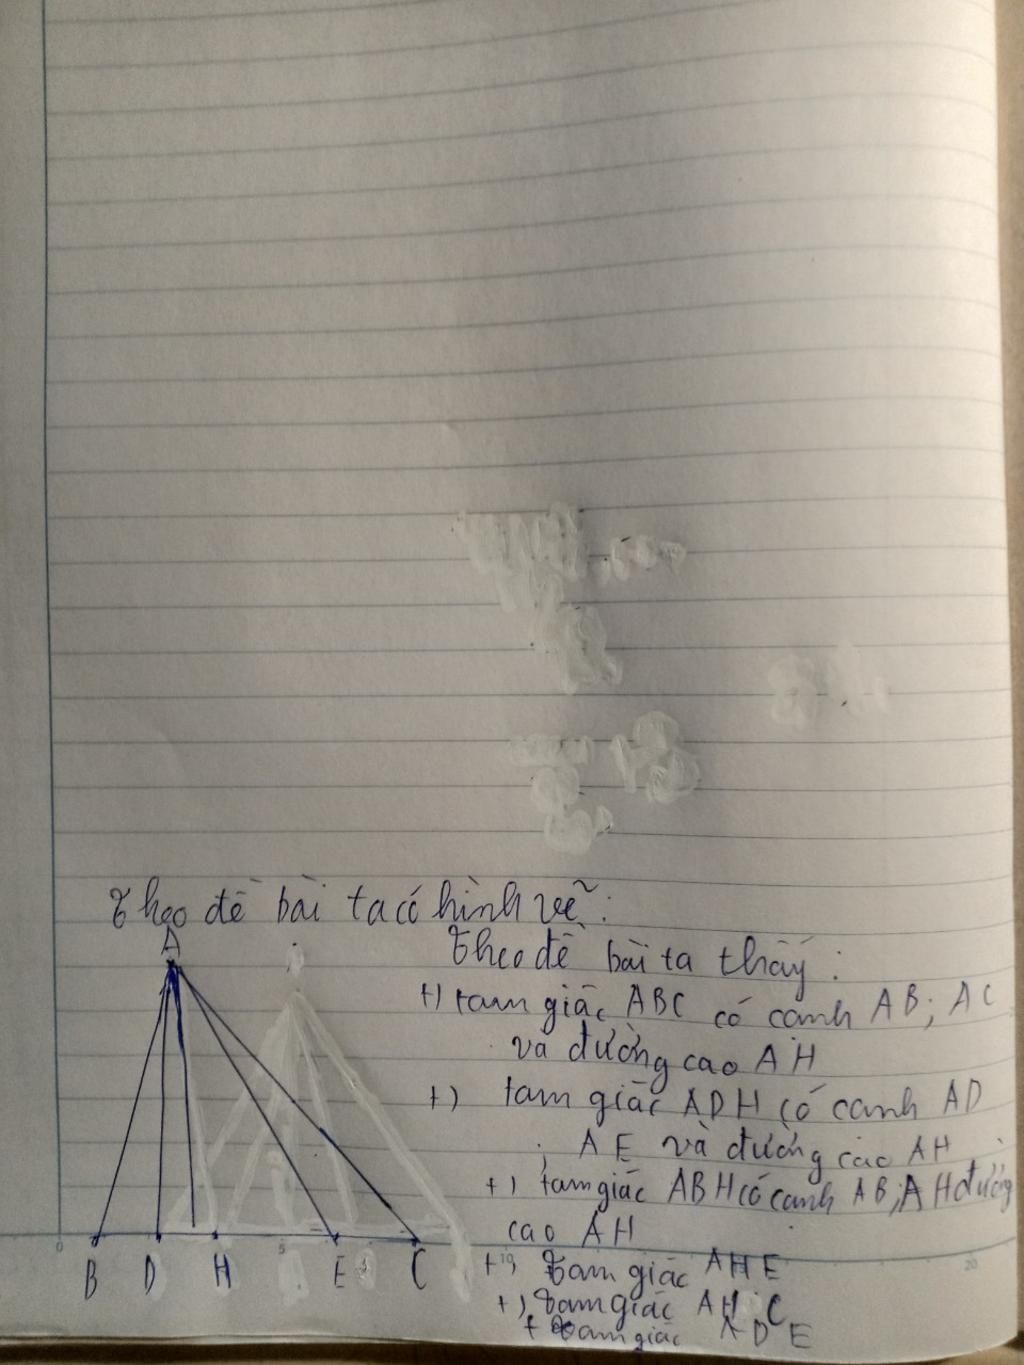 Theo đề bài ta có hình vẽ:
A
Theo đề bài ta thấy:
+) tam giác ABC có cạnh AB; AC
và đường cao AH
+) tam giác ADH có cạnh AD
; AE và đường cao AH
+) tam giác ABH có cạnh AB; AH đường
cao AH
B D H E C
+) Tam giác AHE
+) Tam giác AH C
+ Tam giác ADE
0 5 10 20